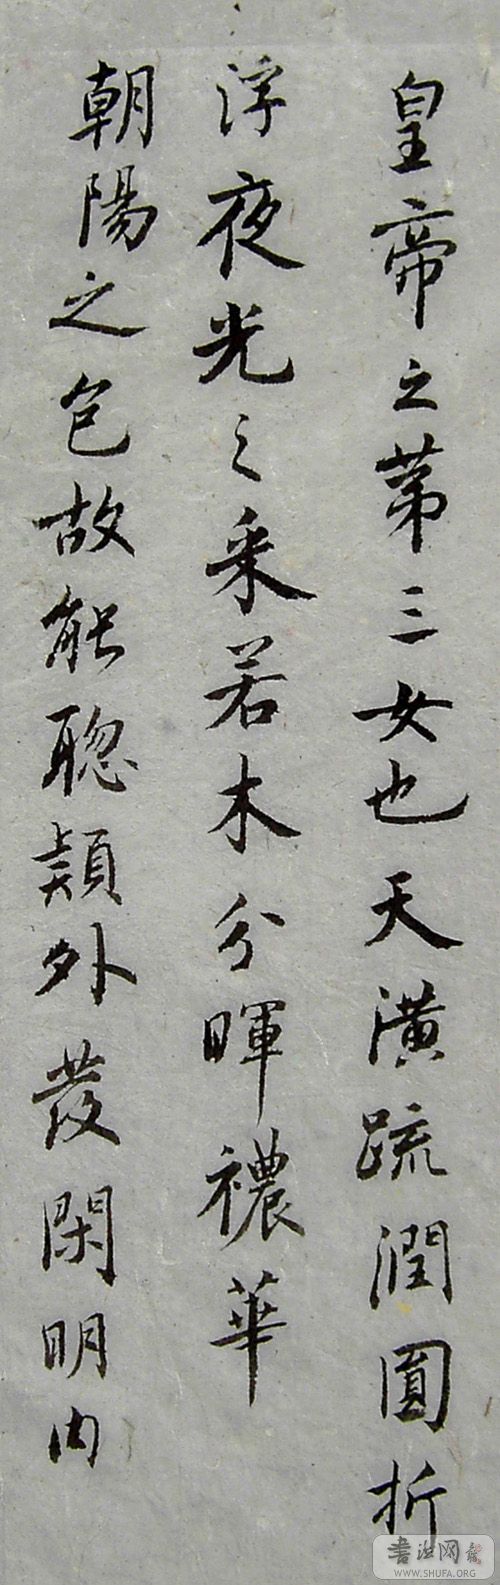 皇帝之第三女也天潢疏潤圓折
浮夜光之采若木分暉襛華
朝陽之色故能聰穎外發閑明內
書法网
WWW.SHUFA.ORG